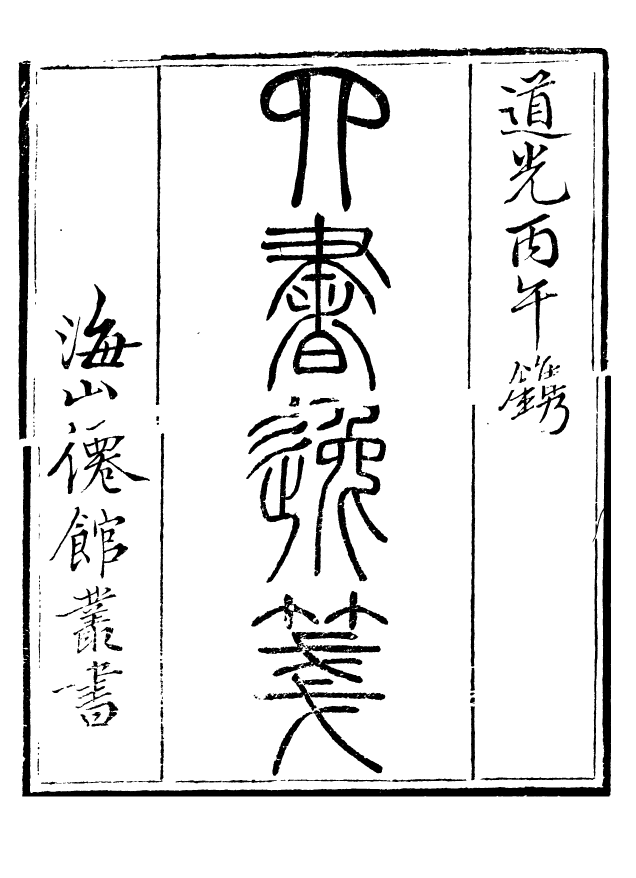 道光丙午鐫
四書逸箋
海山僊館叢書